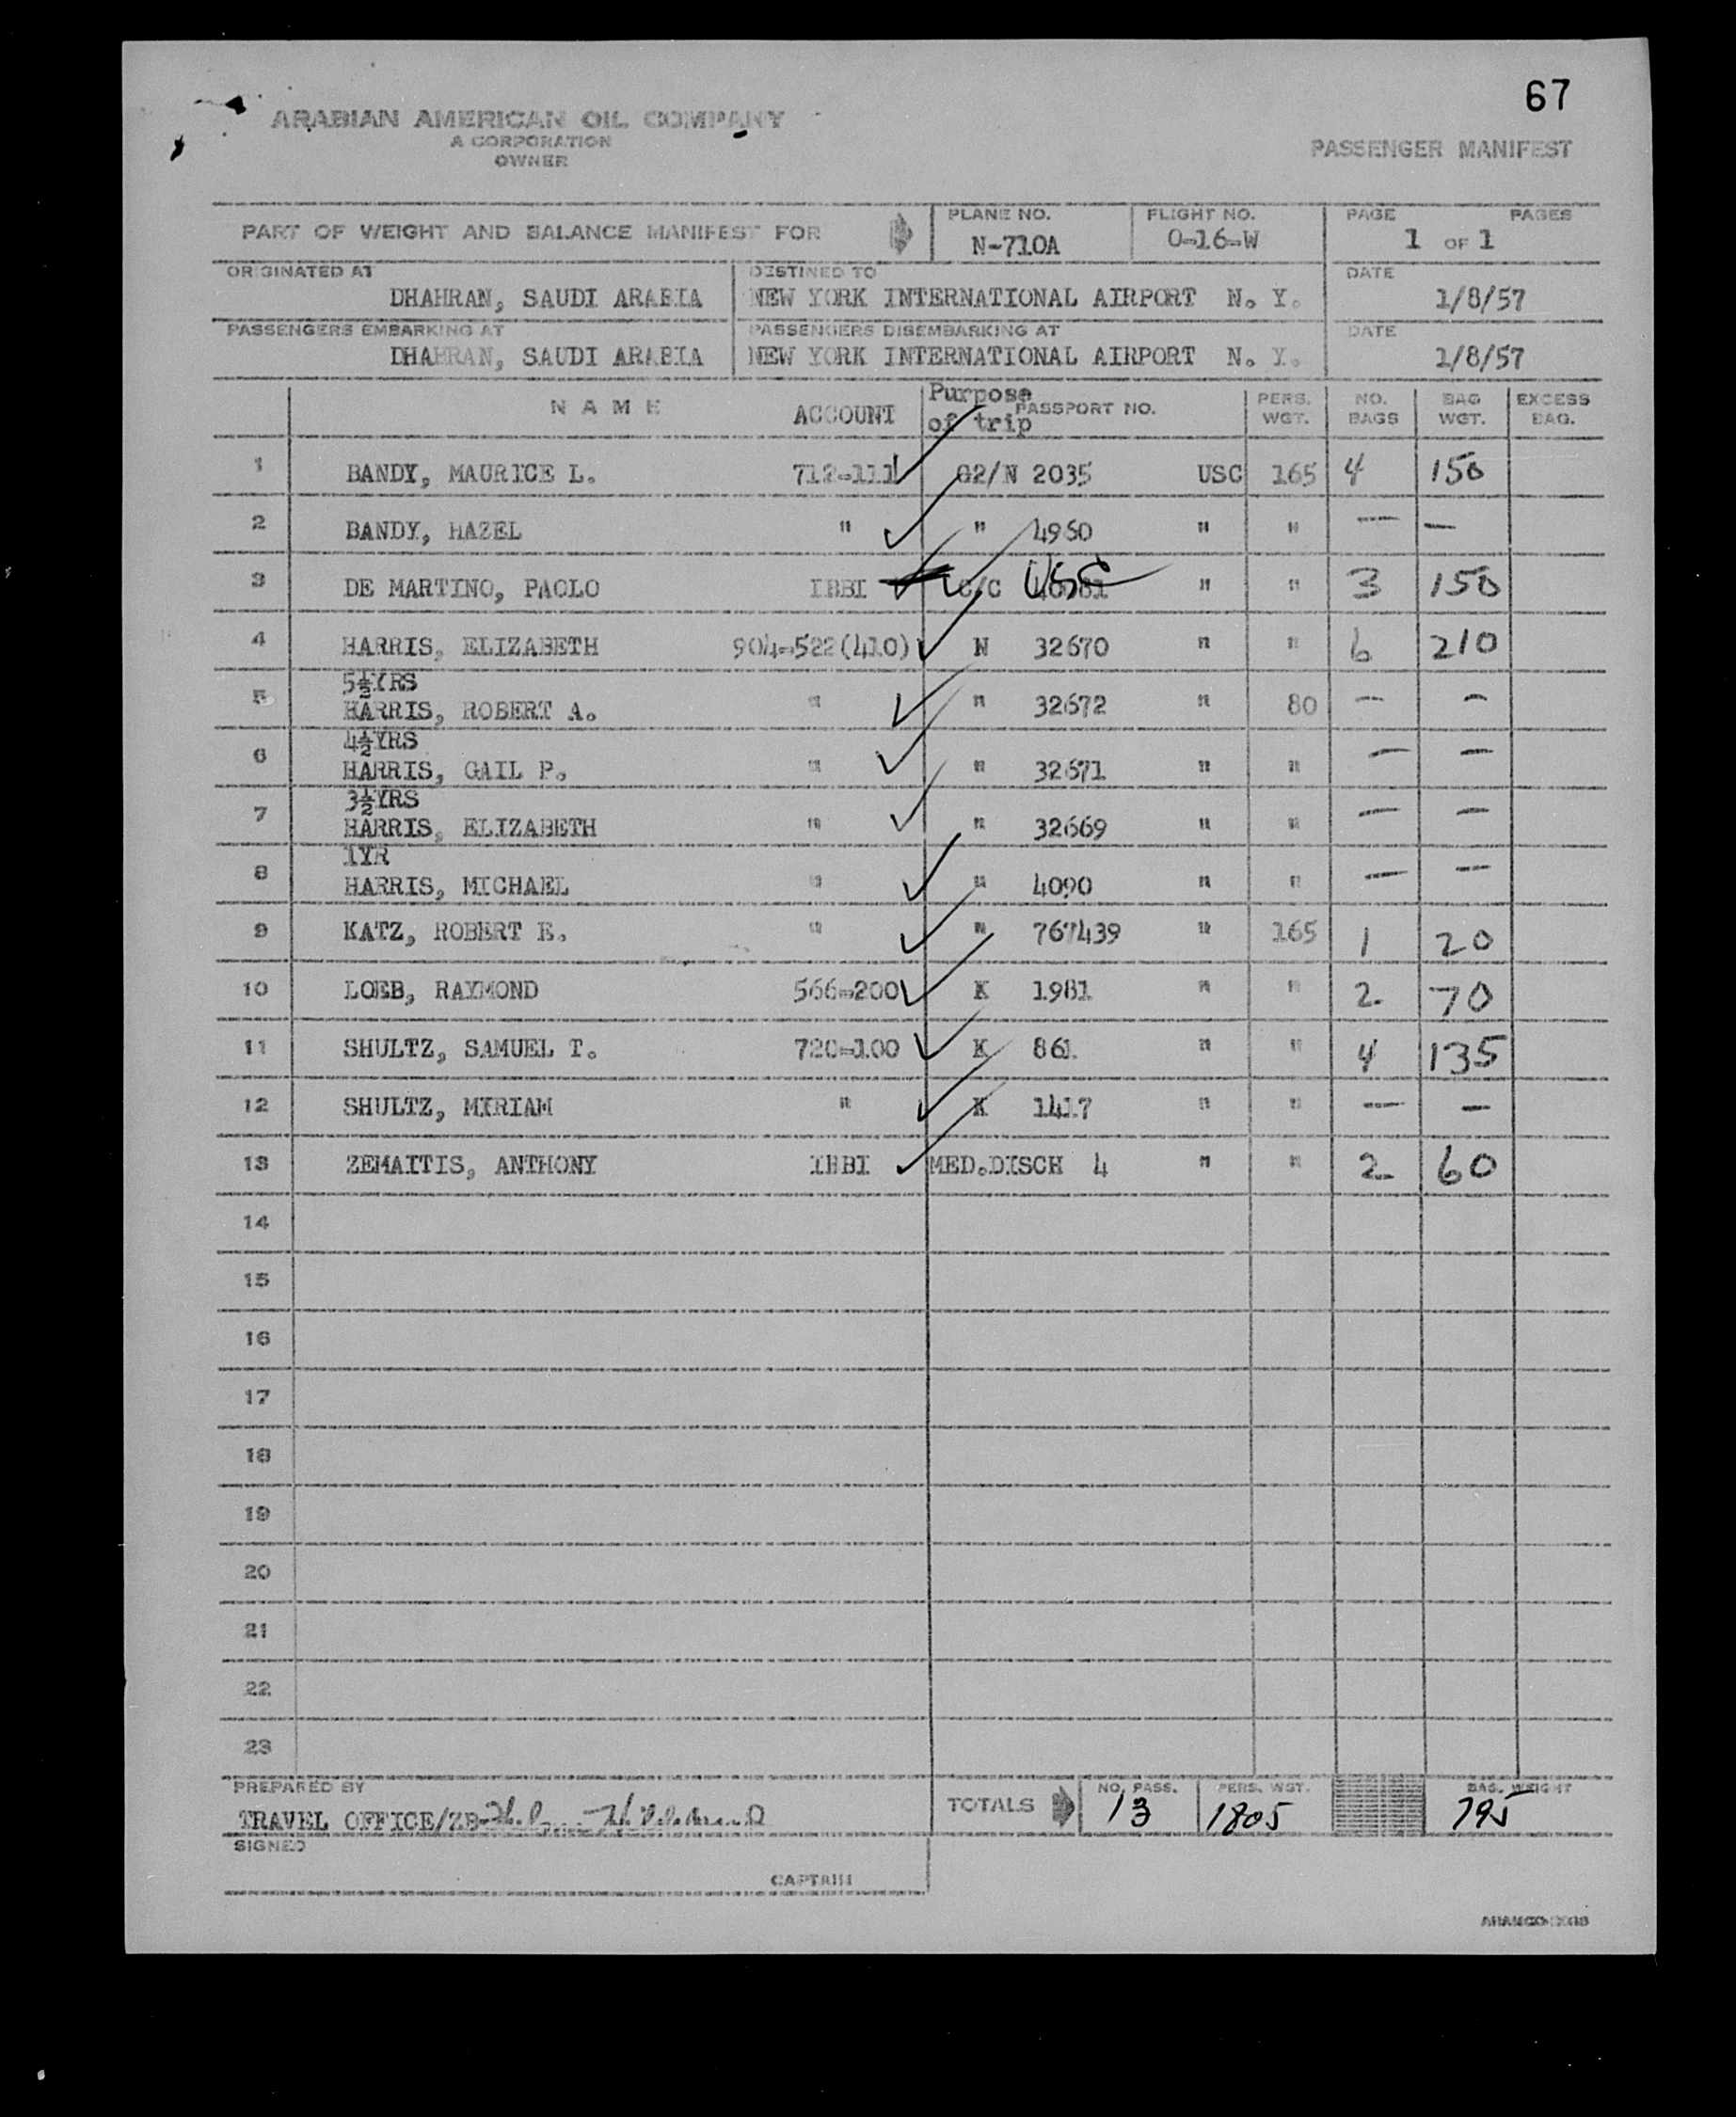 67
ARABIAN AMERICAN OIL COMPANY
A CORPORATION
OWNER
PASSENGER MANIFEST
PART OF WEIGHT AND BALANCE MANIFEST FOR PLANE NO. N-710A FLIGHT NO. O-16-W PAGE 1 OF 1 PAGES
ORIGINATED AT DESTINED TO DATE
DHAHRAN, SAUDI ARABIA NEW YORK INTERNATIONAL AIRPORT N. Y. 1/8/57
PASSENGERS EMBARKING AT PASSENGERS DISEMBARKING AT DATE
DHAHRAN, SAUDI ARABIA NEW YORK INTERNATIONAL AIRPORT N. Y. 1/8/57
NAME ACCOUNT Purpose of trip PASSPORT NO. PERS. WGT. NO. BAGS BAG WGT. EXCESS BAG.
1 BANDY, MAURICE L. 712-111 G2/N 2035 USC 165 4 150
2 BANDY, HAZEL " " 4950 " " — —
3 DE MARTINO, PAOLO IBBI C/C USC " " 3 150
4 HARRIS, ELIZABETH 904-522(410) N 32670 " " 6 210
5½YRS
5 HARRIS, ROBERT A. " " 32672 " 80 — —
4½YRS
6 HARRIS, GAIL P. " " 32671 " " — —
3½YRS
7 HARRIS, ELIZABETH " " 32669 " " — —
1YR
8 HARRIS, MICHAEL " " 4090 " " — —
9 KATZ, ROBERT E. " " 767439 " 165 1 20
10 LOEB, RAYMOND 566-200 K 1981 " " 2 70
11 SHULTZ, SAMUEL T. 720-100 K 861 " " 4 135
12 SHULTZ, MIRIAM " K 1417 " " — —
13 ZEMAITIS, ANTHONY IBBI MED.DISCH 4 " " 2 60
14
15
16
17
18
19
20
21
22
23
PREPARED BY TOTALS NO. PASS. 13 PERS. WGT. 1805 BAG. WEIGHT 795
TRAVEL OFFICE/ZB-
SIGNED
CAPTAIN